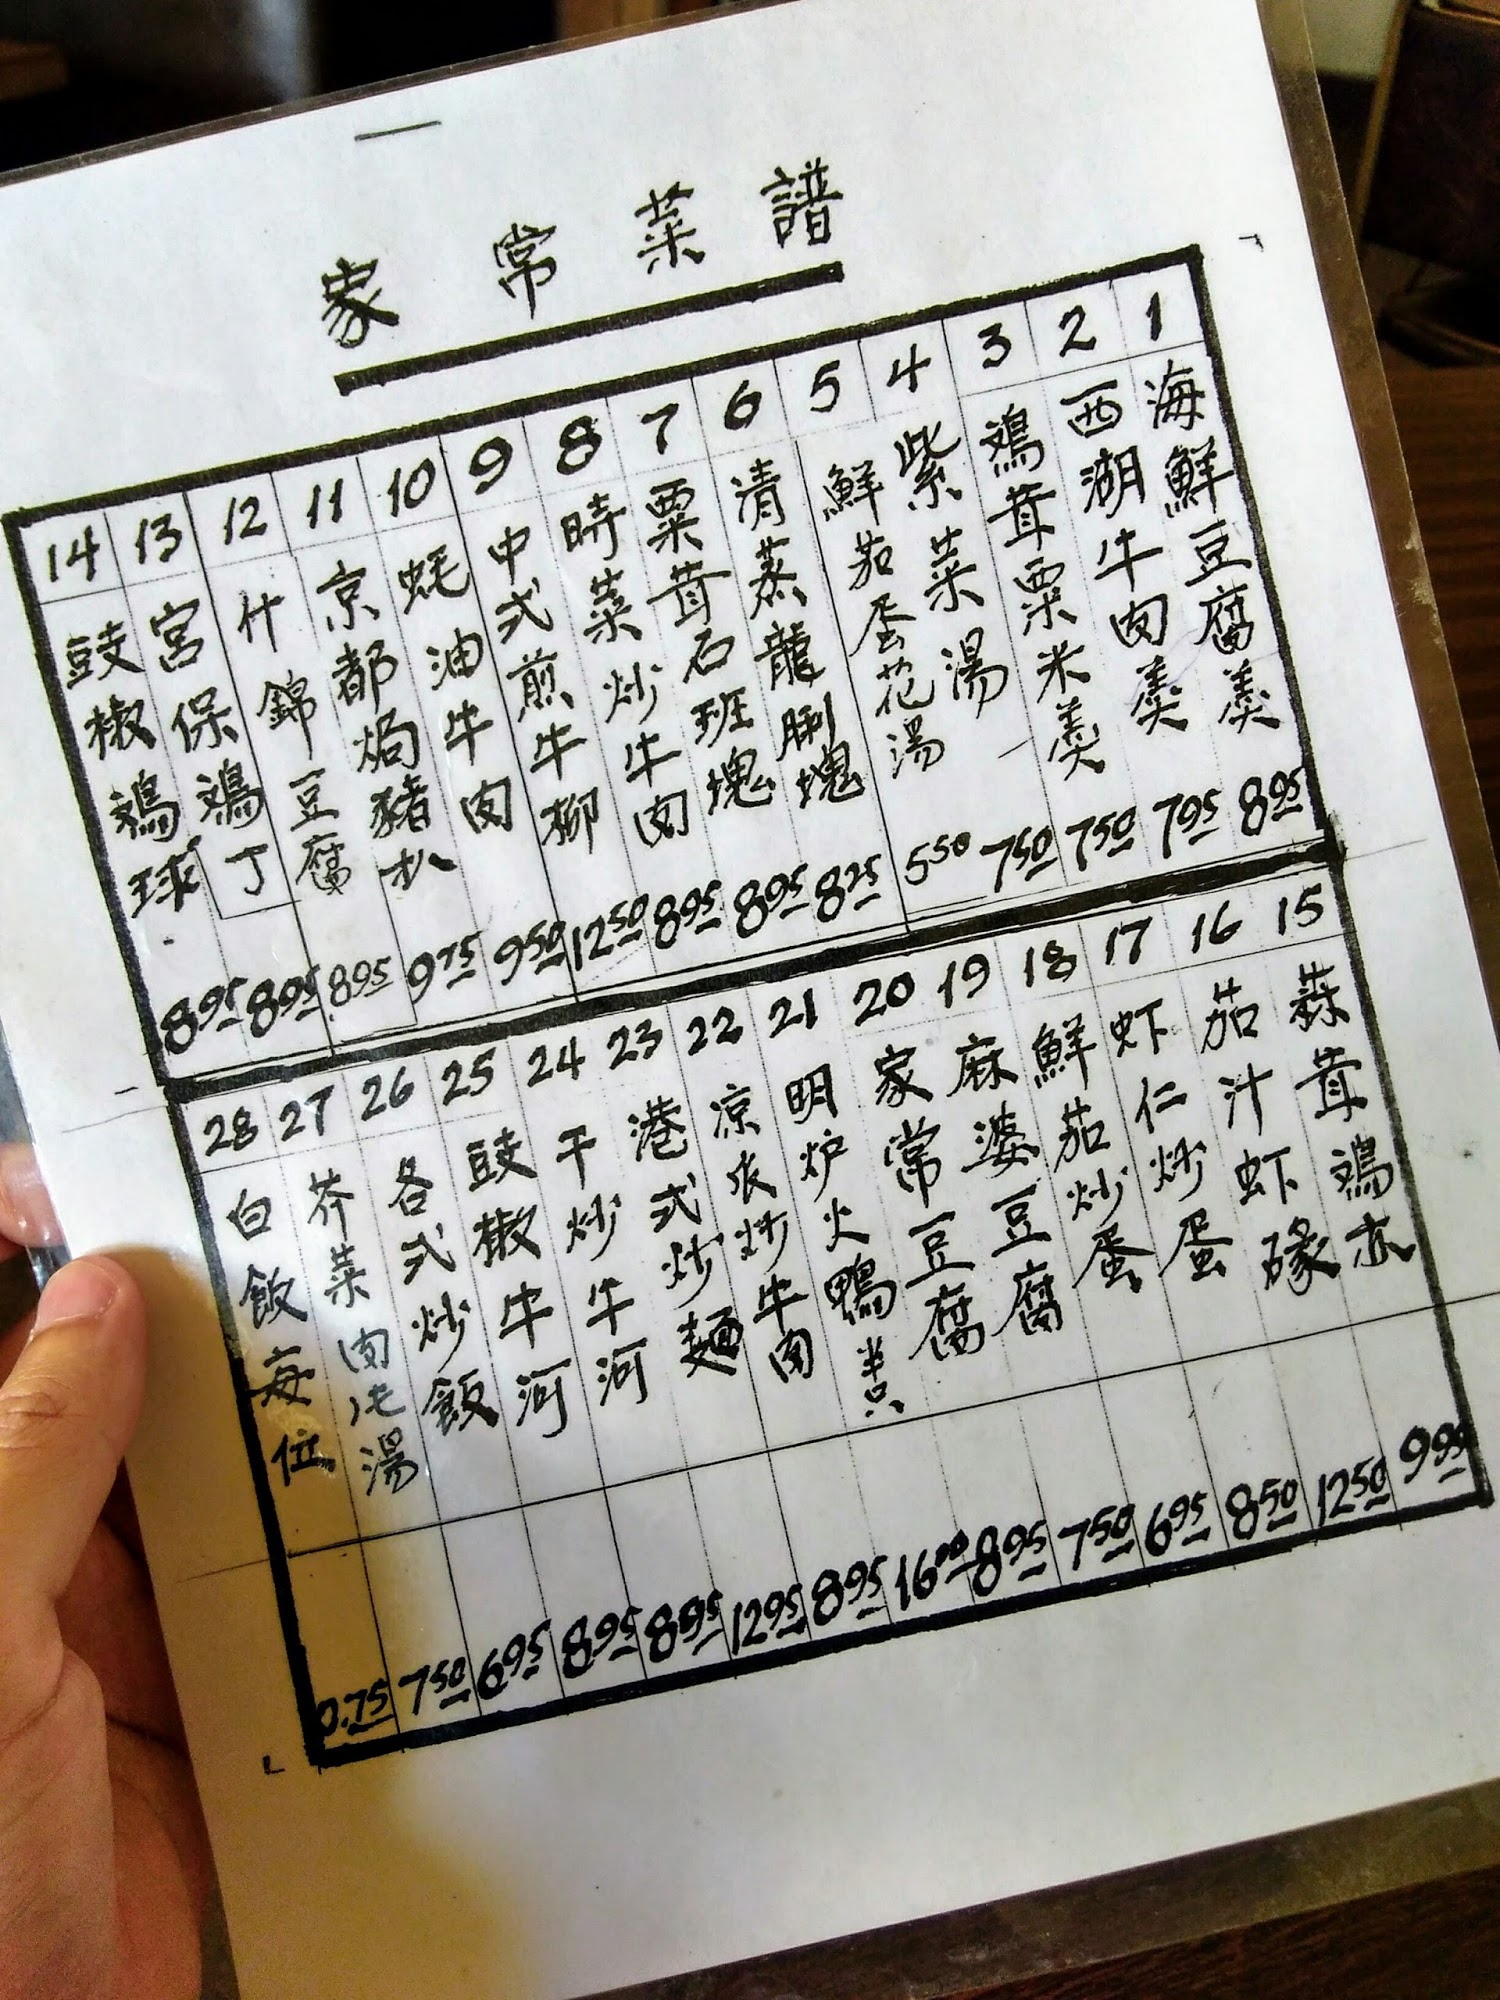 家常菜譜
1 海鮮豆腐羹 8.95
2 西湖牛肉羹 7.95
3 鷄茸粟米羹 7.50
4 紫菜湯 7.50
5 鮮茄蛋花湯 5.50
6 清蒸龍脷塊 8.25
7 粟茸石班塊 8.95
8 時菜炒牛肉 8.95
9 中式煎牛柳 12.50
10 蚝油牛肉 9.50
11 京都焗豬扒 9.75
12 什錦豆腐 8.95
13 宮保鷄丁 8.95
14 豉椒鷄球 8.95
15 蒜茸鷄 9.95
16 茄汁虾碌 12.50
17 虾仁炒蛋 8.50
18 鮮茄炒蛋 6.95
19 麻婆豆腐 7.50
20 家常豆腐 8.95
21 明炉火鴨半只 16.00
22 凉瓜炒牛肉 8.95
23 港式炒麵 12.95
24 干炒牛河 8.95
25 豉椒牛河 8.95
26 各式炒飯 6.95
27 芥菜肉湯 7.50
28 白飯每位 0.75